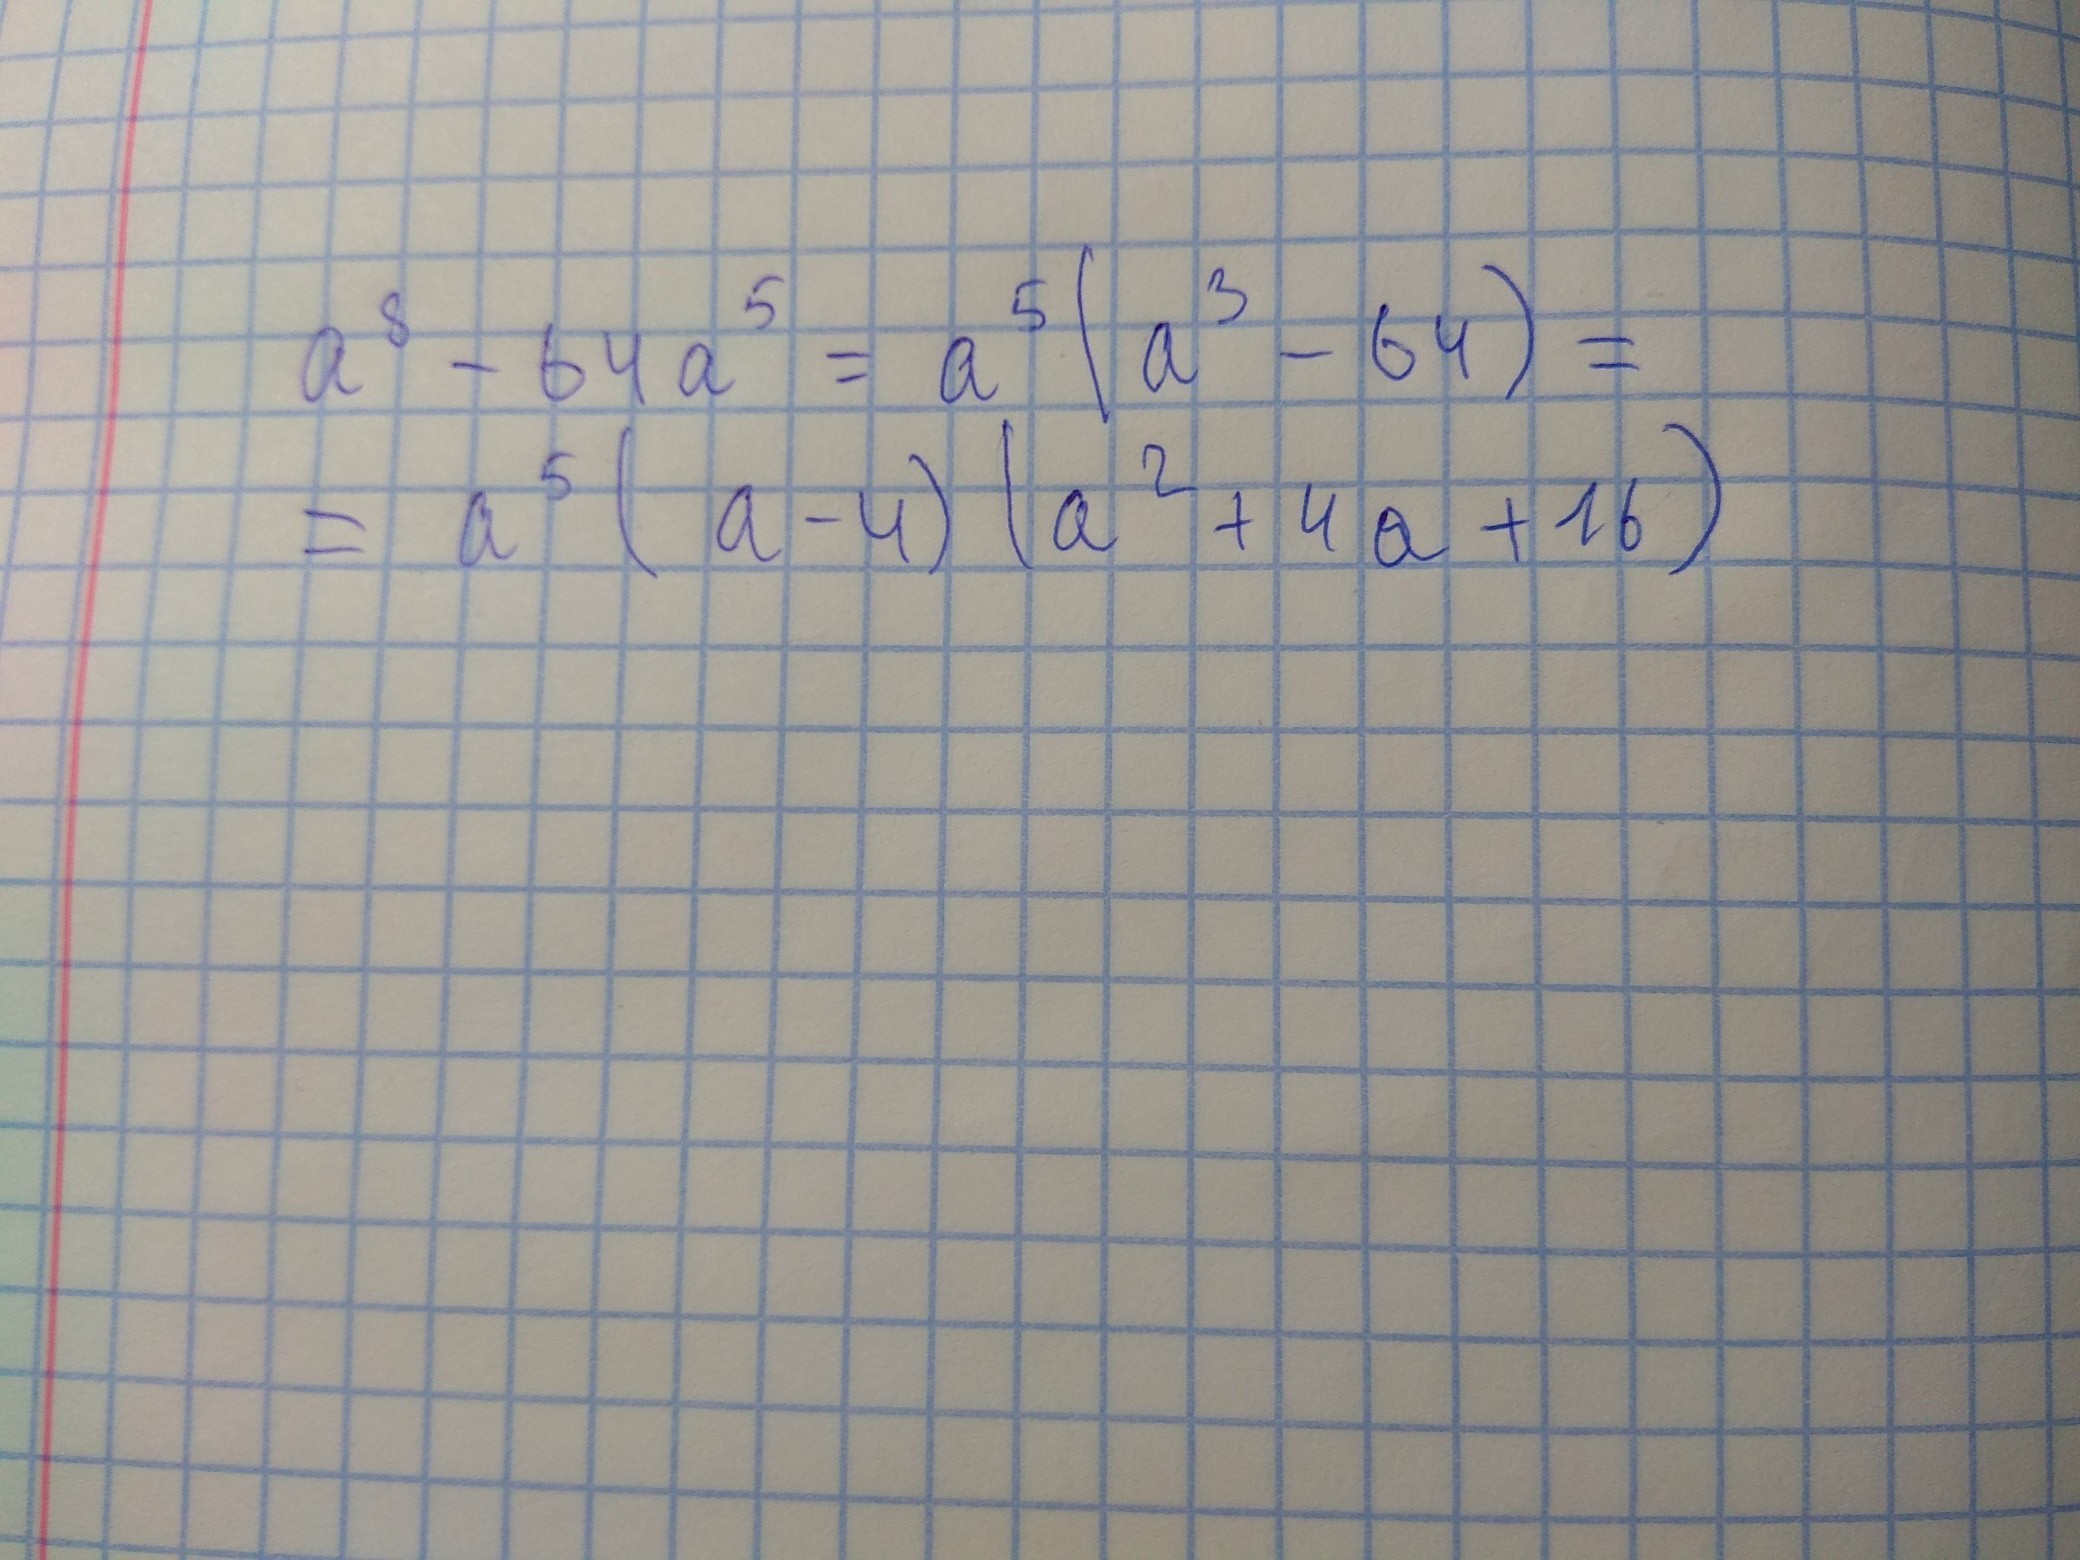 a⁸ - 64a⁵ = a⁵(a³ - 64) =
= a⁵(a-4)(a² + 4a + 16)